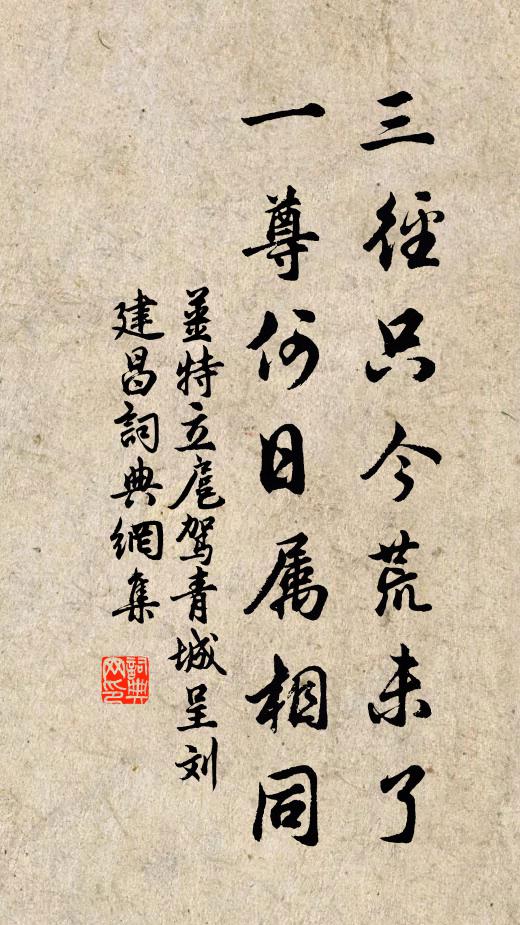 三徑只今荒未了
一尊何日属相同
姜特立扈駕青城呈刘
建昌詞典網集
詞典网印